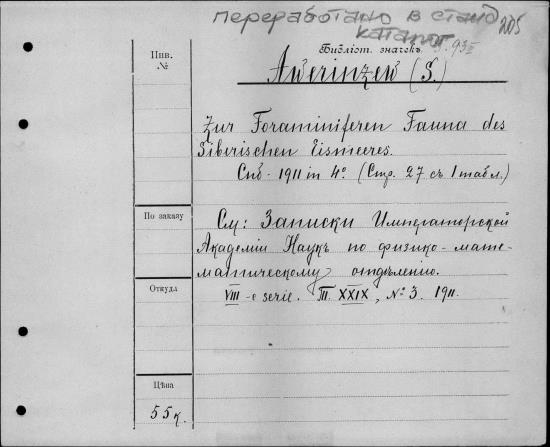 переработано в станд
каталог
205
Библіот. значекъ
Инв.
№
Awerinzew (S.)
Zur Foraminiferen Fauna des
Sibirischen Eismeeres.
Спб. 1911 in 4º. (Стр. 27 съ 1 табл.)
По заказу
См: Записки Императорской
Академіи Наукъ по физико-мате-
матическому отдѣленію.
Откуда
VIII-e serie. Т. XXIX, № 3. 1911.
Цѣна
55 к.